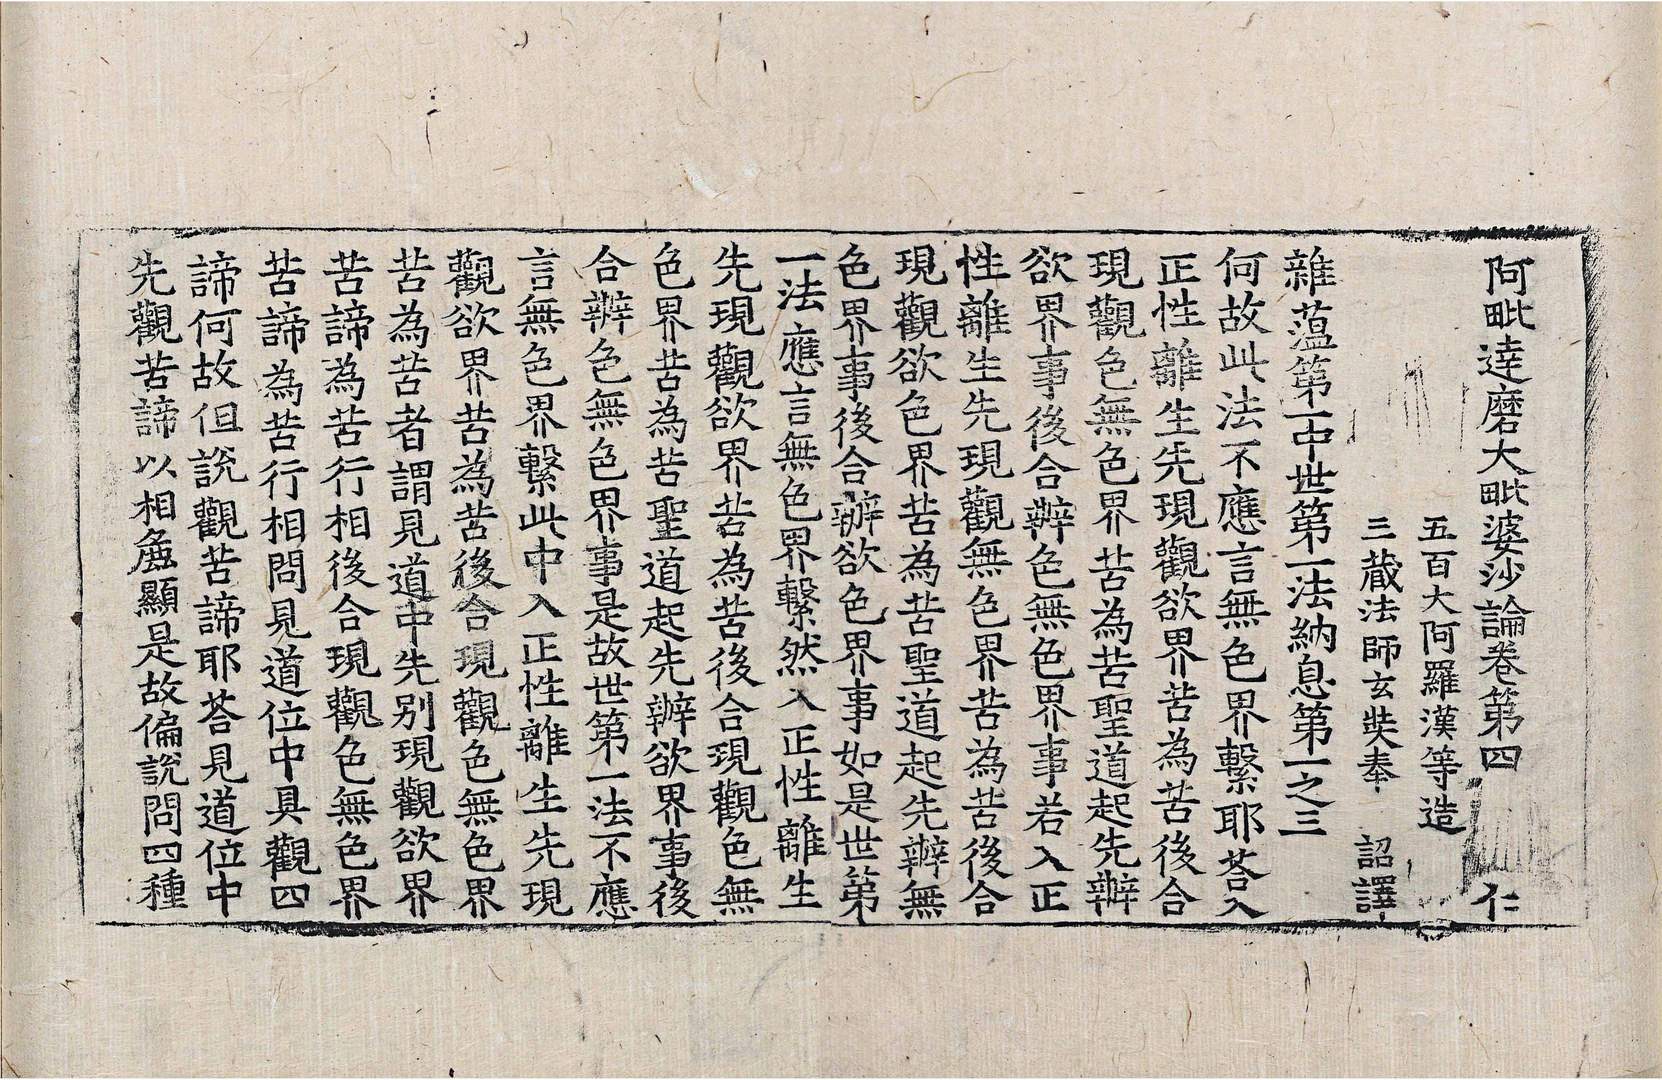 阿毗達磨大毗婆沙論卷第四　仁
五百大阿羅漢等造
三藏法師玄奘奉　詔譯
雜蕰第一中世第一法納息第一之三
何故此法不應言無色界繫耶荅入
正性離生先現觀欲界苦為苦後合
現觀色無色界苦為苦聖道起先辦
欲界事後合辦色無色界事若入正
性離生先現觀無色界苦為苦後合
現觀欲色界苦為苦聖道起先辦無
色界事後合辦欲色界事如是世第
一法應言無色界繫然入正性離生
先現觀欲界苦為苦後合現觀色無
色界苦為苦聖道起先辦欲界事後
合辦色無色界事是故世第一法不應
言無色界繫此中入正性離生先現
觀欲界苦為苦後合現觀色無色界
苦為苦者謂見道中先別現觀欲界
苦諦為苦行相後合現觀色無色界
苦諦為苦行相問見道位中具觀四
諦何故但說觀苦諦耶荅見道位中
先觀苦諦以相麁顯是故偏說問四種